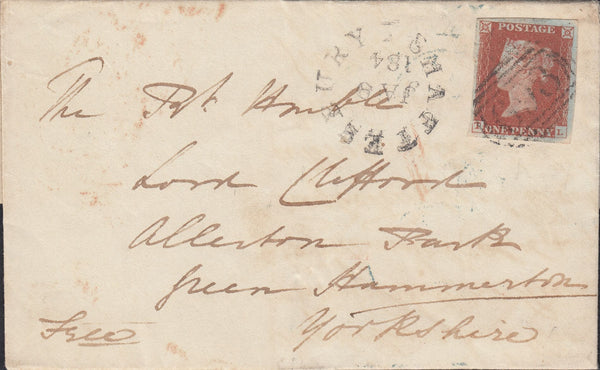 POSTAGE
ONE PENNY L
184
JA
The Rt Honble
Lord Clifford
Allerton Park
Green Hammerton
Yorkshire
Free